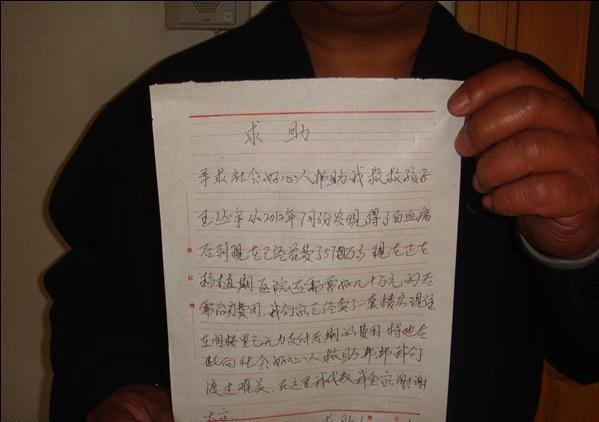 求 助
寻求社会好心人帮助我救救孩子
从2012年7月份发现得了白血病
后到现在已经花费了57万多 现在正在
移植期 医院还需要好几十万元的
治疗费用,我们家已经卖了一套楼房现住
在阁楼里已无力支付后期的费用 特地在
此向社会好心人救助帮帮我们
渡过难关,在这里我代表我全家谢谢
大家